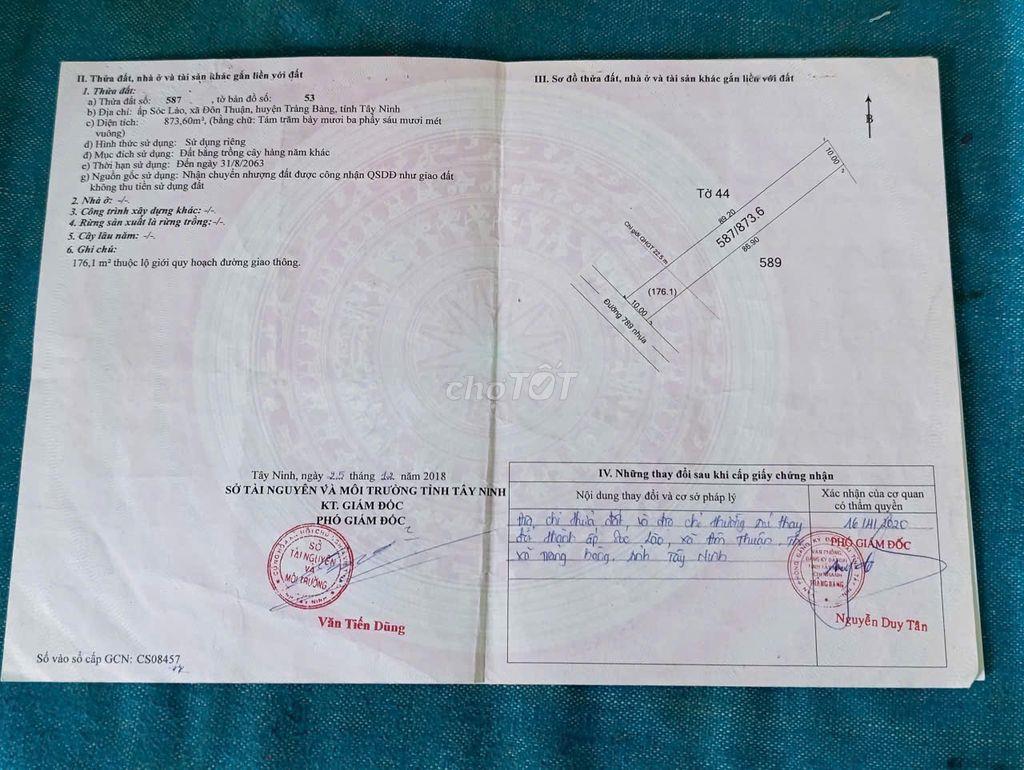 II. Thửa đất, nhà ở và tài sản khác gắn liền với đất
1. Thửa đất:
a) Thửa đất số: 587 , tờ bản đồ số: 53
b) Địa chỉ: ấp Sóc Lào, xã Đôn Thuận, huyện Trảng Bàng, tỉnh Tây Ninh
c) Diện tích: 873,60m², (bằng chữ: Tám trăm bảy mươi ba phẩy sáu mươi mét
vuông)
d) Hình thức sử dụng: Sử dụng riêng
đ) Mục đích sử dụng: Đất bằng trồng cây hàng năm khác
e) Thời hạn sử dụng: Đến ngày 31/8/2063
g) Nguồn gốc sử dụng: Nhận chuyển nhượng đất được công nhận QSDĐ như giao đất
không thu tiền sử dụng đất
2. Nhà ở: -/-
3. Công trình xây dựng khác: -/-
4. Rừng sản xuất là rừng trồng:-/-
5. Cây lâu năm: -/-
6. Ghi chú:
176,1 m² thuộc lộ giới quy hoạch đường giao thông.
Tây Ninh, ngày 25 tháng 12 năm 2018
SỞ TÀI NGUYÊN VÀ MÔI TRƯỜNG TỈNH TÂY NINH
KT. GIÁM ĐỐC
PHÓ GIÁM ĐỐC
SỞ
TÀI NGUYÊN
VÀ
MÔI TRƯỜNG
Văn Tiến Dũng
Số vào sổ cấp GCN: CS08457
III. Sơ đồ thửa đất, nhà ở và tài sản khác gắn liền với đất
B
10.00
Tờ 44
89.20
587/873.6
86.90
589
Chỉ giới QHGT 22.5 m
(176.1)
10.00
Đường 789 nhựa
choTỐT
IV. Những thay đổi sau khi cấp giấy chứng nhận
Nội dung thay đổi và cơ sở pháp lý
Xác nhận của cơ quan
có thẩm quyền
Địa chỉ thửa đất và địa chỉ thường trú thay
đổi thành ấp Sóc Lào, xã Đôn Thuận, Thị
xã Trảng Bàng, tỉnh Tây Ninh
16/11/2020
PHÓ GIÁM ĐỐC
VĂN PHÒNG
ĐĂNG KÝ ĐẤT ĐAI
CHI NHÁNH
TRẢNG BÀNG
Nguyễn Duy Tân